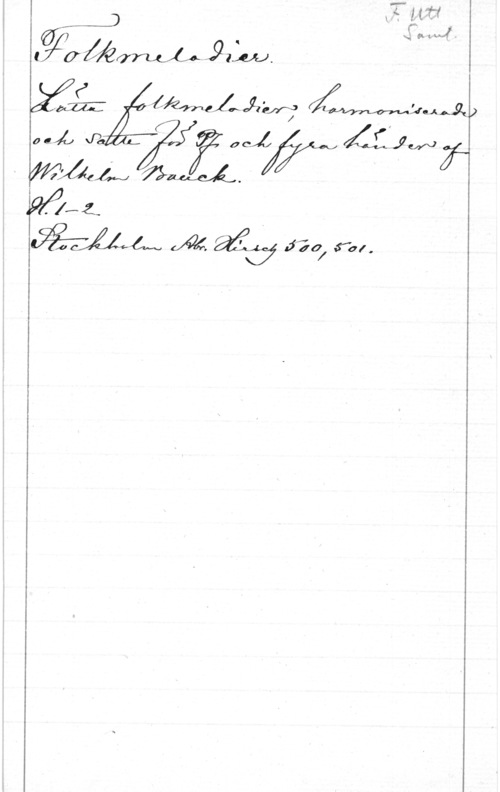 F. Utt
Saml.
Folkmelodier.
Lätta folkmelodier, harmoniserade
och satte för Pf. och fyra händer af
Wilhelm Bauck.
H. 1-2
Stockholm Abr. Hirsch 500, 501.